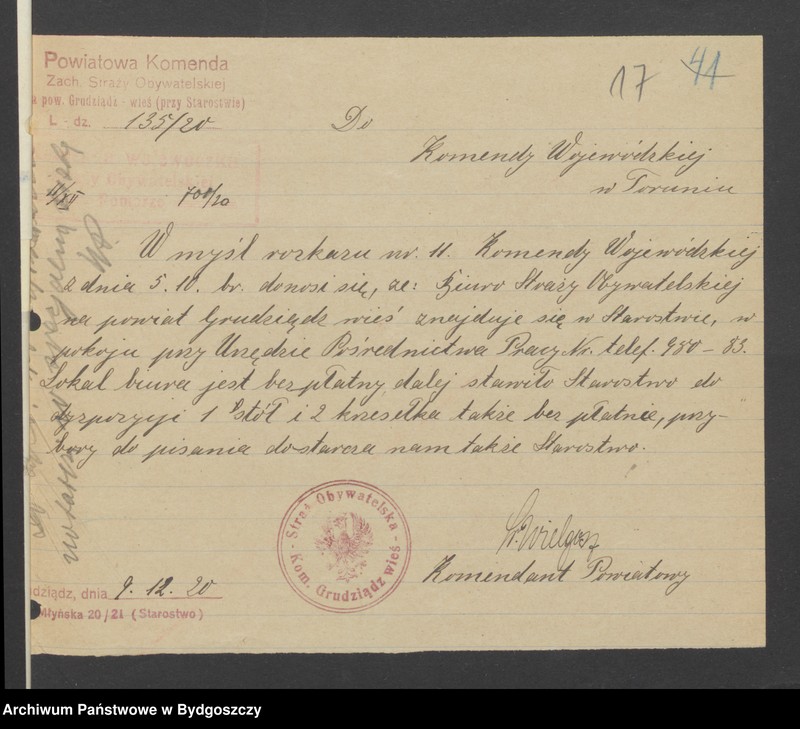 Powiatowa Komenda
Zach. Straży Obywatelskiej
pow. Grudziądz - wieś (przy Starostwie)
L - dz. 135/20
17 41
Do
Komendy Wojewódzkiej
w Toruniu
Obywatelskiej
Pomorze
11/XII 700/20
W myśl rozkazu nr. 11. Komendy Wojewódzkiej
z dnia 5.10. br. donosi się, że: Biuro Straży Obywatelskiej
na powiat Grudziądz wieś znajduje się w Starostwie, w
pokoju przy Urzędzie Pośrednictwa Pracy Nr. telef. 980 - 83.
Lokal biura jest bezpłatny, dalej stawiło Starostwo do
dyspozycji 1 stół i 2 krzesełka także bezpłatnie, przy-
bory do pisania dostarcza nam także Starostwo.
- Straż Obywatelska -
Kom. Grudziądz wieś
St. Wielgosz
Komendant Powiatowy
dziądz, dnia 9. 12. 20
Młyńska 20/21 (Starostwo)
Archiwum Państwowe w Bydgoszczy